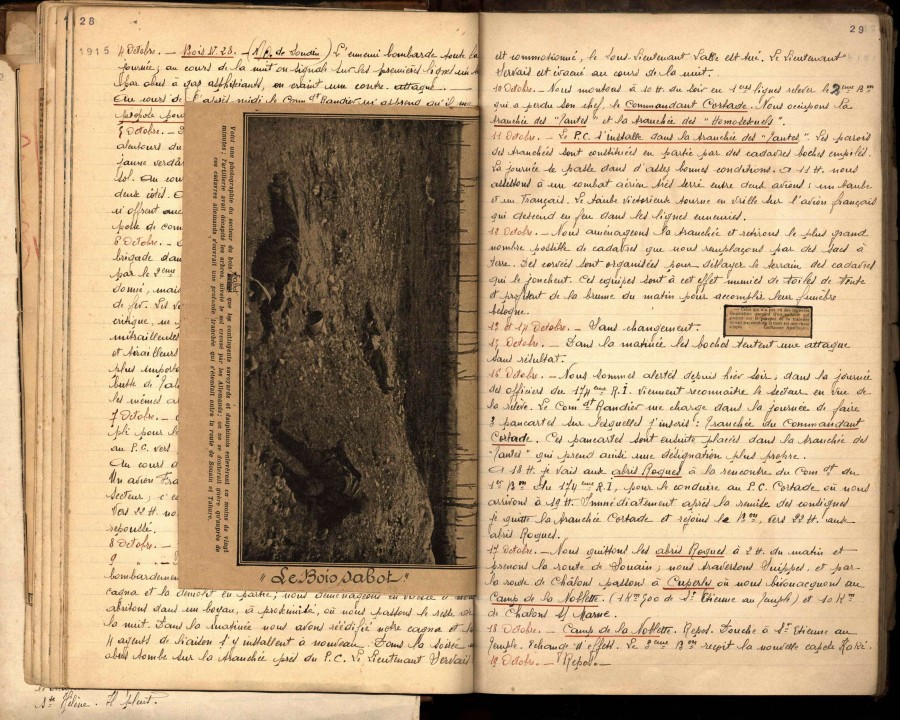 28
1915
4 Octobre. — Bois N. 28. — (N/p. de Souain) L'ennemi bombarde toute la
journée ; au cours de la nuit on signale sur les premières lignes un
obus à gaz asphyxiants, on craint une contre-attaque.
Au cours de l'après midi le Com^dt Randier
5 Octobre. —
alentours du
jaune verdâ
sol. Au cou
deux côtés. A
6 Octobre. —
brigade dan
par le 2ème
donné, mais
de fer. Les
critique, ne
mitrailleuses
et tirailleurs
plus import
Butte de
les mêmes
7 Octobre. —
pli pour
au P.C. vers
Au cours d
Un avion Fra
secteur ; c'e
Vers 22 H. no
repoussé.
8 Octobre. —
9 —
bombardement
Voici une photographie du secteur de bois Sabot que les contingents savoyards et dauphinois enlevèrent en moins de vingt
minutes ; l'artillerie avait décapité les arbres, nivelé le sol creusé par les Allemands ; on ne se douterait guère qu'auprès de
ces cadavres allemands s'ouvrait une profonde tranchée qui s'étendait entre la route de Souain et Tahure.
" Le Bois Sabot "
cagna et la démolit en partie ; nous déménageons en vitesse
abritons dans un boyau, à proximité, où nous passons le reste de
la nuit. Dans la matinée nous avons réédifié notre cagna et
4 agents de liaison s'y installent à nouveau. Dans la soirée
obus tombe sur la tranchée près du P.C. Le Lieutenant Servait
Ste Hélène. Il pleut.
29
est commotionné, le Sous-Lieutenant est tué. Le Lieutenant
Servait est évacué au cours de la nuit.
10 Octobre. — Nous montons à 20 H. du soir en 1ères lignes relever le 2ème Bon
qui a perdu son chef, le Commandant Cortade. Nous occupons la
tranchée des "Tantes" et la tranchée des "Homosexuels".
11 Octobre. — Le P.C. s'installe dans la tranchée des "Tantes". Les parois
des tranchées sont constituées en partie par des cadavres boches empilés.
La journée se passe dans d'assez bonnes conditions. A 11 H. nous
assistons à un combat aérien très serré entre deux avions : un taube
et un Français. Le taube victorieux tourne en vrille sur l'avion français
qui descend en feu dans les lignes ennemies.
12 Octobre. — Nous aménageons la tranchée et retirons le plus grand
nombre possible de cadavres que nous remplaçons par des sacs à
terre. Des corvées sont organisées pour déblayer le terrain des cadavres
qui le jonchent. Ces équipes sont à cet effet munies de toiles de tente
et profitent de la brume du matin pour accomplir leur funèbre
besogne.
13 et 14 Octobre. — Sans changement.
15 Octobre. — Dans la matinée les boches tentent une attaque
sans résultat.
16 Octobre. — Nous sommes alertés depuis hier soir ; dans la journée
des officiers du 174ème R.I. viennent reconnaître le secteur en vue de
la relève. Le Com^dt Randier me charge dans la journée de faire
3 pancartes sur lesquelles j'inscris : Tranchée du Commandant
Cortade. Ces pancartes sont ensuite placées dans la tranchée des
"Tantes" qui prend ainsi une désignation plus propre.
A 18 H. je vais aux abris Roques à la rencontre du Com^dt du
1er Bon du 174ème R.I. pour le conduire au P.C. Cortade où nous
arrivons à 19 H. Immédiatement après la remise des consignes
je quitte la tranchée Cortade et rejoins le Bon, vers 22 H. aux
abris Roques.
17 Octobre. — Nous quittons les abris Roques à 2 H. du matin et
prenons la route de Souain ; nous traversons Suippes, et par
la route de Châlons passons à Cuperly où nous bivouacquons au
Camp de la Noblette. (1 Km 900 de St Etienne au Temple) et 10 Km
de Chalons s/ Marne.
18 Octobre. — Camp de la Noblette. Repos. Douche à St Etienne au
Temple. Echange d'effets. Le 2ème Bon reçoit la nouvelle capote Kaki.
19 Octobre. — Repos. —